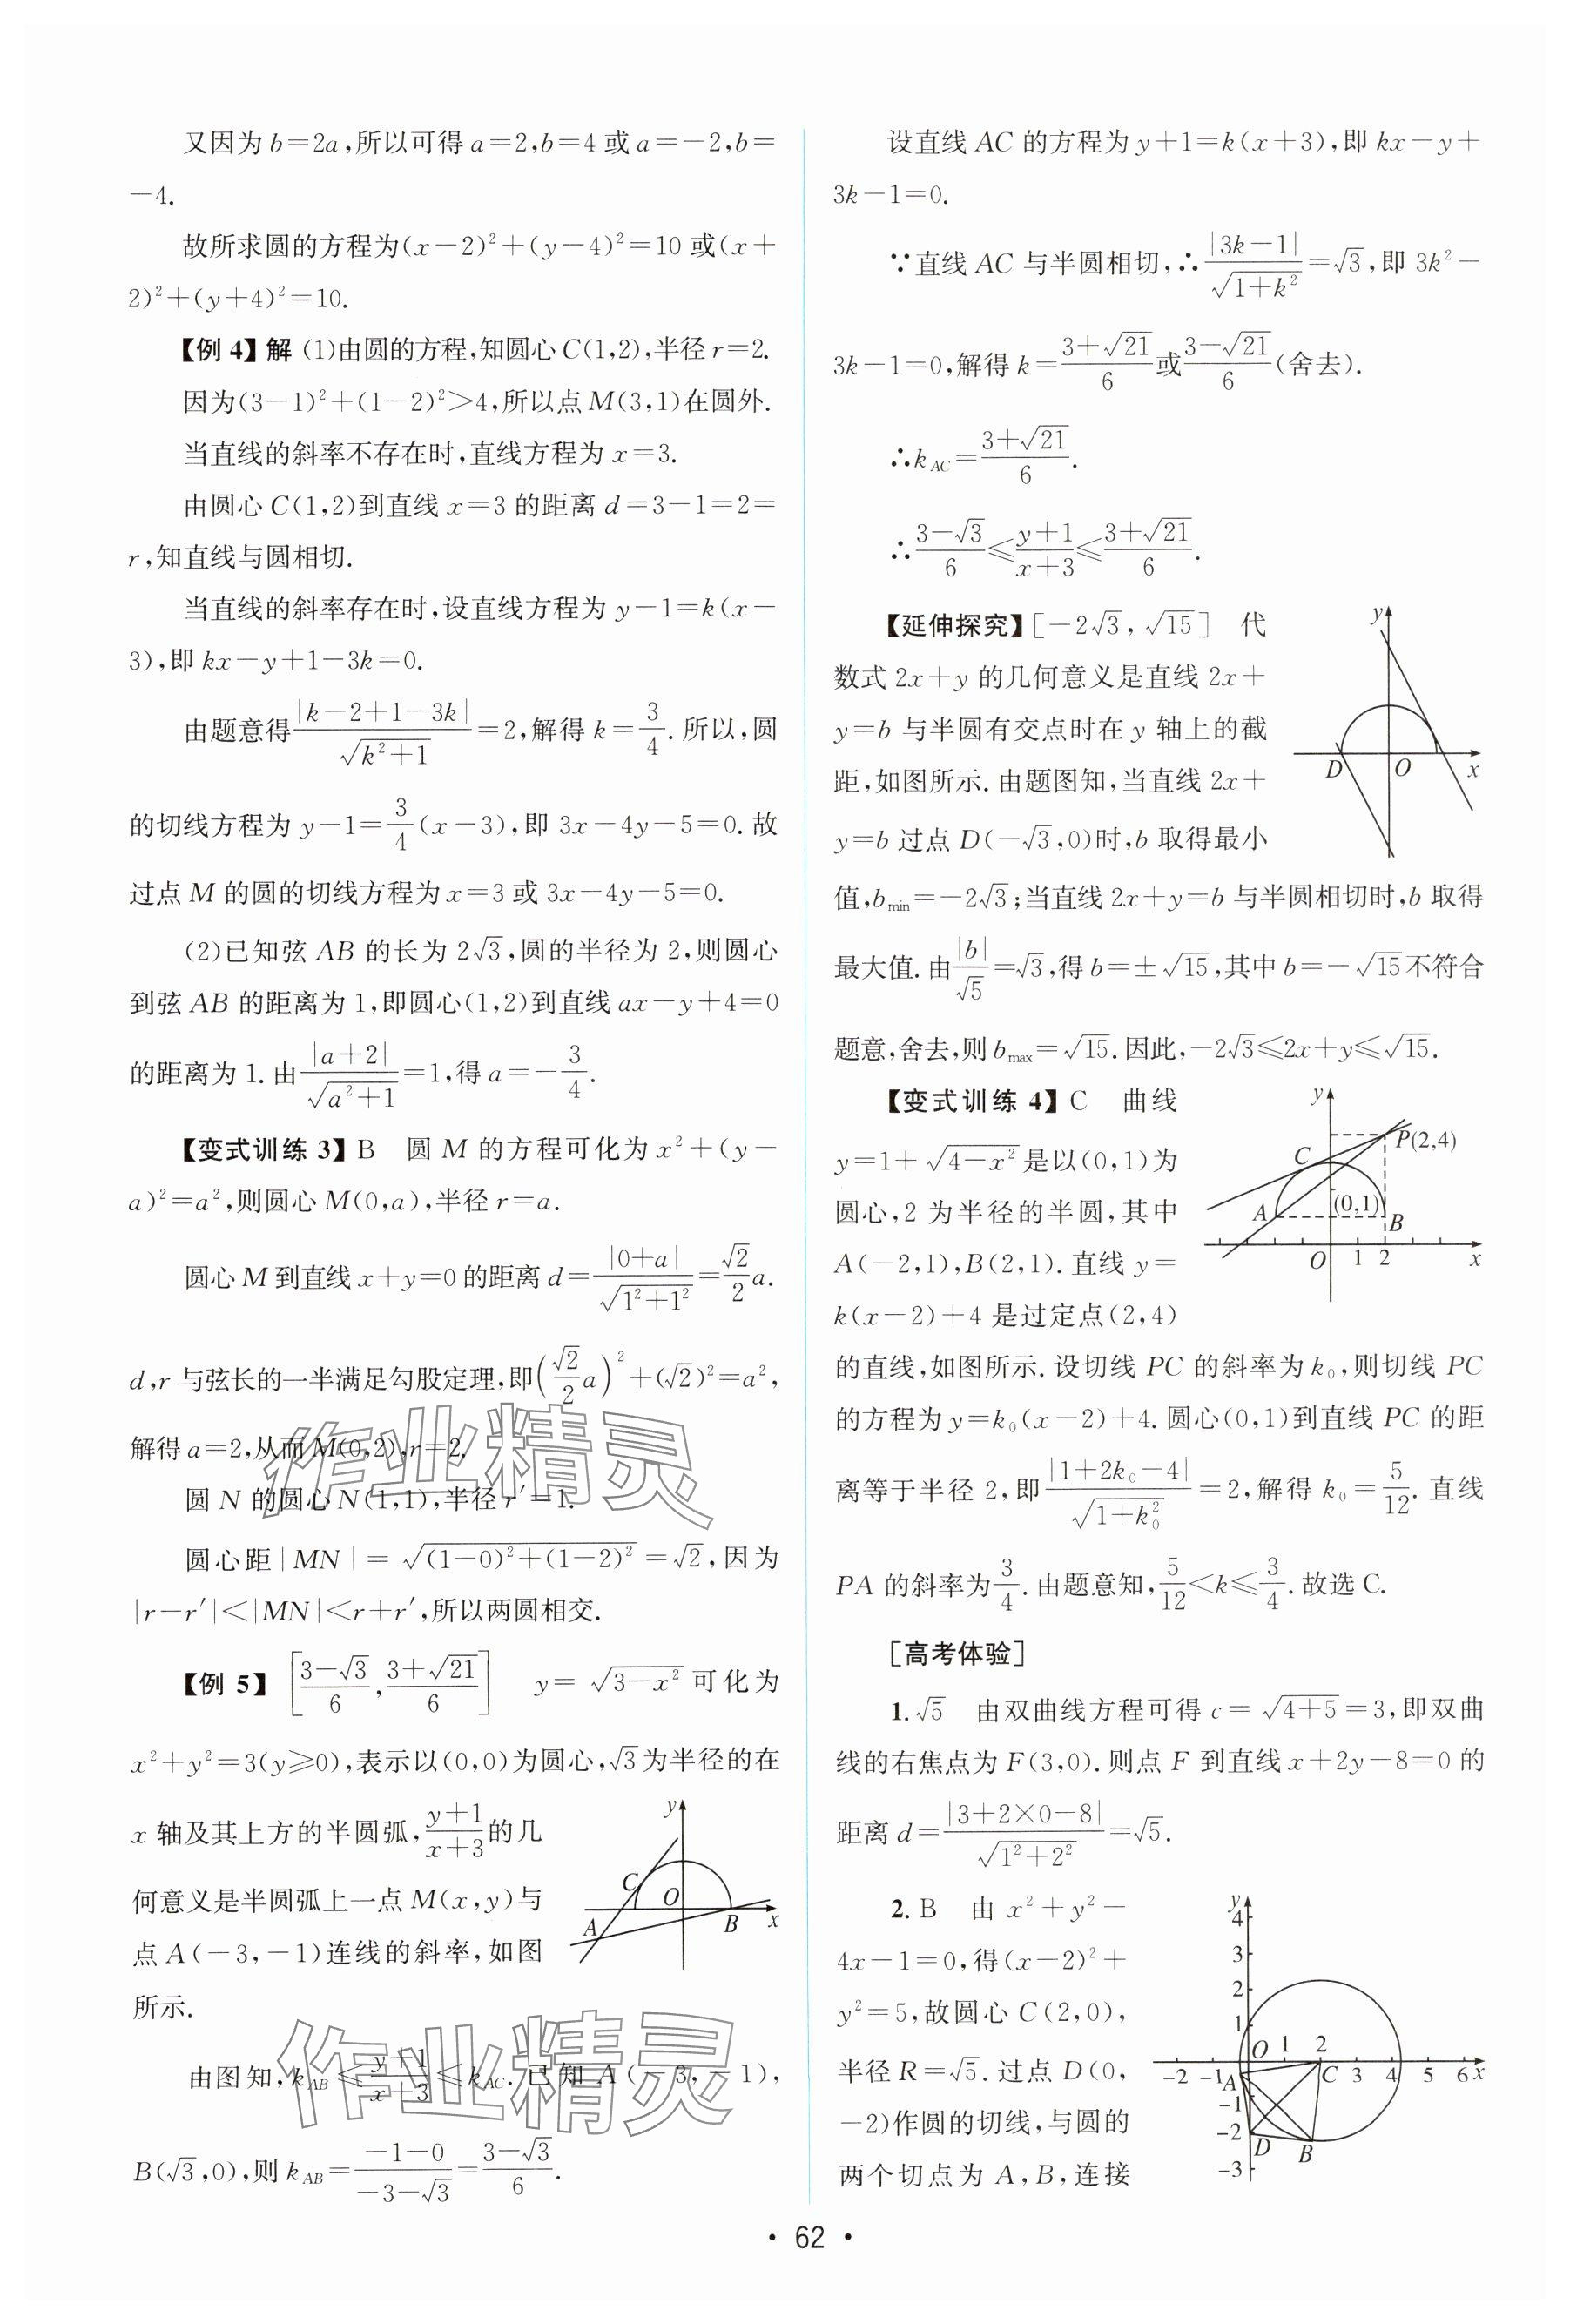 又因为 b=2a,所以可得 a=2,b=4 或 a=-2,b=
-4.
故所求圆的方程为(x-2)²+(y-4)²=10 或(x+
2)²+(y+4)²=10.
【例 4】解 (1)由圆的方程,知圆心 C(1,2),半径 r=2.
因为(3-1)²+(1-2)²>4,所以点 M(3,1)在圆外.
当直线的斜率不存在时,直线方程为 x=3.
由圆心 C(1,2)到直线 x=3 的距离 d=3-1=2=
r,知直线与圆相切.
当直线的斜率存在时,设直线方程为 y-1=k(x-
3),即 kx-y+1-3k=0.
由题意得|k-2+1-3k|/√(k²+1)=2,解得 k=3/4.所以,圆
的切线方程为 y-1=3/4(x-3),即 3x-4y-5=0.故
过点 M 的圆的切线方程为 x=3 或 3x-4y-5=0.
(2)已知弦 AB 的长为 2√3,圆的半径为 2,则圆心
到弦 AB 的距离为 1,即圆心(1,2)到直线 ax-y+4=0
的距离为 1.由|a+2|/√(a²+1)=1,得 a=-3/4.
【变式训练 3】B 圆 M 的方程可化为 x²+(y-
a)²=a²,则圆心 M(0,a),半径 r=a.
圆心 M 到直线 x+y=0 的距离 d=|0+a|/√(1²+1²)=√2/2 a.
d,r 与弦长的一半满足勾股定理,即(√2/2 a)²+(√2)²=a²,
解得 a=2,从而 M(0,2),r=2.
圆 N 的圆心 N(1,1),半径 r′=1.
圆心距|MN|=√((1-0)²+(1-2)²)=√2,因为
|r-r′|<|MN|<r+r′,所以两圆相交.
【例 5】 [(3-√3)/6,(3+√21)/6] y=√(3-x²)可化为
x²+y²=3(y≥0),表示以(0,0)为圆心,√3为半径的在
x 轴及其上方的半圆弧,(y+1)/(x+3)的几
何意义是半圆弧上一点 M(x,y)与
点 A(-3,-1)连线的斜率,如图
所示.
y
C
O
A
B
x
由图知,k_AB≤(y+1)/(x+3)≤k_AC.已知 A(-3,-1),
B(√3,0),则 k_AB=(-1-0)/(-3-√3)=(3-√3)/6.
设直线 AC 的方程为 y+1=k(x+3),即 kx-y+
3k-1=0.
∵直线 AC 与半圆相切,∴|3k-1|/√(1+k²)=√3,即 3k²-
3k-1=0,解得 k=(3+√21)/6或(3-√21)/6(舍去).
∴k_AC=(3+√21)/6.
∴(3-√3)/6≤(y+1)/(x+3)≤(3+√21)/6.
【延伸探究】[-2√3,√15] 代
数式 2x+y 的几何意义是直线 2x+
y=b 与半圆有交点时在 y 轴上的截
距,如图所示.由题图知,当直线 2x+
y=b 过点 D(-√3,0)时,b 取得最小
y
D
O
x
值,b_min=-2√3;当直线 2x+y=b 与半圆相切时,b 取得
最大值.由|b|/√5=√3,得 b=±√15,其中 b=-√15不符合
题意,舍去,则 b_max=√15.因此,-2√3≤2x+y≤√15.
【变式训练 4】C 曲线
y=1+√(4-x²)是以(0,1)为
圆心,2 为半径的半圆,其中
A(-2,1),B(2,1).直线 y=
k(x-2)+4 是过定点(2,4)
y
P(2,4)
C
(0,1)
A
B
O 1 2 x
的直线,如图所示.设切线 PC 的斜率为 k₀,则切线 PC
的方程为 y=k₀(x-2)+4.圆心(0,1)到直线 PC 的距
离等于半径 2,即|1+2k₀-4|/√(1+k₀²)=2,解得 k₀=5/12.直线
PA 的斜率为3/4.由题意知,5/12<k≤3/4.故选 C.
[高考体验]
1.√5 由双曲线方程可得 c=√(4+5)=3,即双曲
线的右焦点为 F(3,0).则点 F 到直线 x+2y-8=0 的
距离 d=|3+2×0-8|/√(1²+2²)=√5.
2.B 由 x²+y²-
4x-1=0,得(x-2)²+
y²=5,故圆心 C(2,0),
半径 R=√5.过点 D(0,
-2)作圆的切线,与圆的
两个切点为 A,B,连接
y
4
3
2
1
O 1 2
-2 -1 A C 3 4 5 6 x
-1
-2
D B
-3
作业精灵
作业精灵
• 62 •